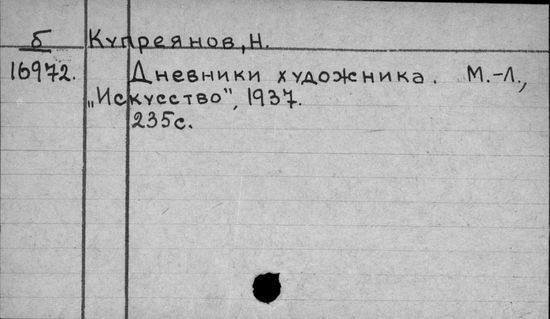 б Купреянов, Н.
16972. Дневники художника. М.-Л.,
„Искусство", 1937.
235с.